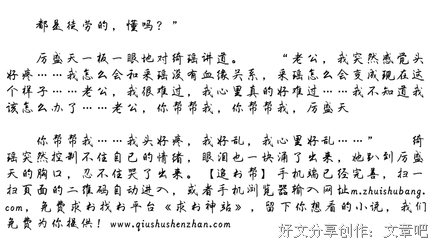 都是徒劳的，懂吗？”
厉盛天一板一眼地对绮瑶讲道。 “老公，我突然感觉头
好疼……我怎么会和采瑶没有血缘关系，采瑶怎么会变成现在这
个样子……老公，我很难过，我心里真的好难过……我不知道我
该怎么办了……老公，你帮帮我，你帮帮我，厉盛天
你帮帮我……我头好疼，我好乱，我心里好乱……” 绮
瑶突然控制不住自己的情绪，眼泪也一块涌了出来，她趴到厉盛
天的胸口，忍不住哭了出来。【追书帮】手机端已经完善，扫一
扫页面的二维码自动进入，或者手机浏览器输入网址m.zhuishubang.
com，免费求书找书平台《求书神站》，留下你想看的小说，我们
免费为你提供！www.qiushushenzhan.com
好文分享创作：文章吧